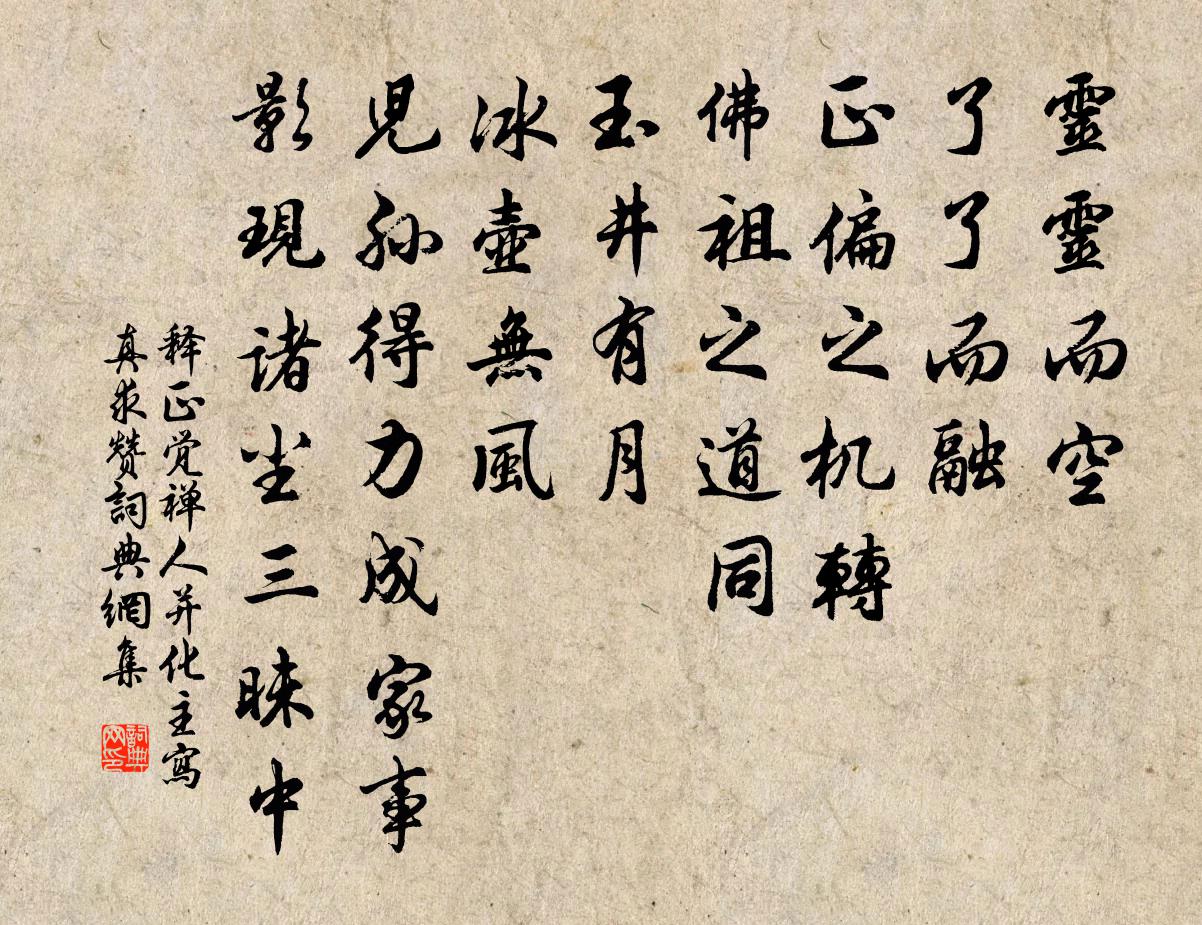 靈靈而空
了了而融
正偏之机轉
佛祖之道同
玉井有月
冰壺無風
児孫得力成家事
影現諸尘三昧中
释正覚禅人并化主寫
真求赞詞典網集
詞典
网印